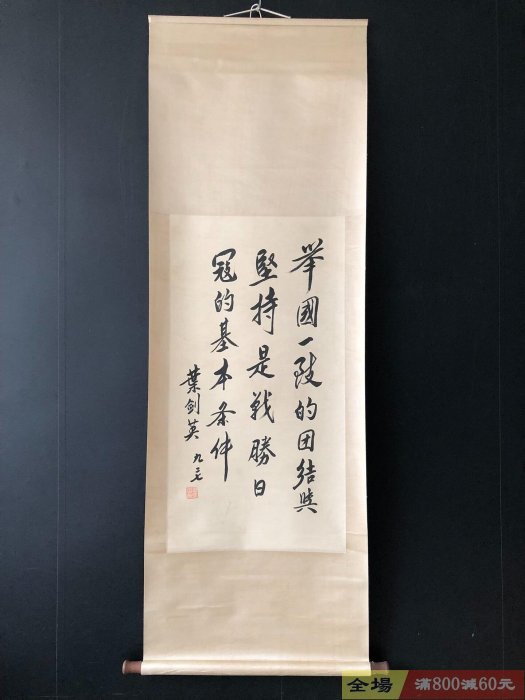 举國一致的团结與
堅持是戰勝日
寇的基本条件
葉劍英 九.七
全場 滿800減60元